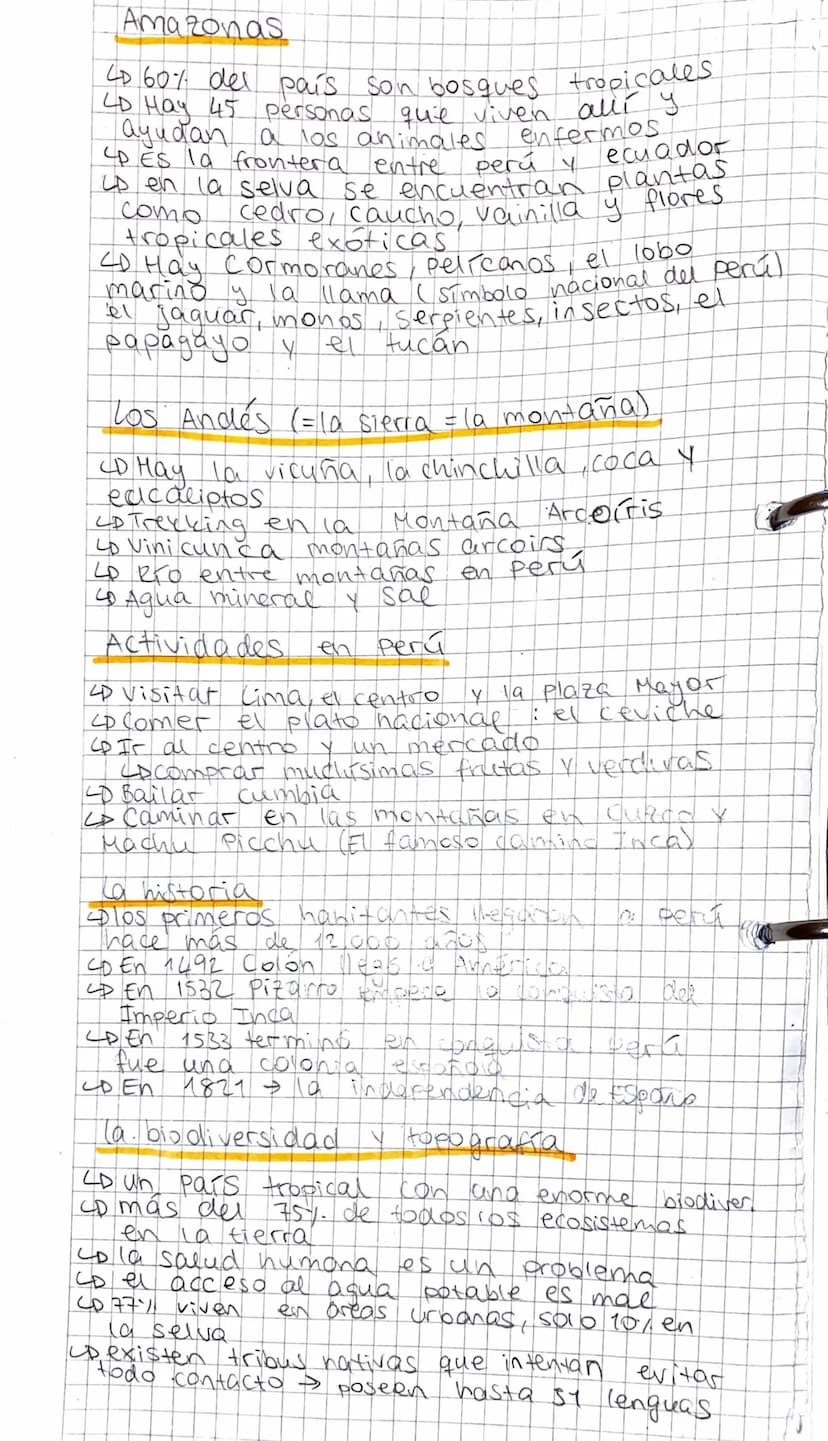 Amazonas
↳ 60% del país son bosques tropicales
↳ Hay 45 personas que viven allí y
ayudan a los animales enfermos
↳ Es la frontera entre perú y ecuador
↳ en la selva se encuentran plantas
como cedro, caucho, vainilla y flores
tropicales exóticas
↳ Hay cormoranes, pelícanos, el lobo
marino y la llama (símbolo nacional del perú)
el jaguar, monos, serpientes, insectos, el
papagayo y el tucán
Los Andés (=la sierra = la montaña)
↳ Hay la vicuña, la chinchilla, coca y
eucaliptos
↳ Trekking en la Montaña Arcoíris
↳ Vinicunca montañas arcoirs
↳ Río entre montañas en perú
↳ Agua mineral y sal
Actividades en perú
↳ Visitar Lima, el centro y la plaza Mayor
↳ Comer el plato nacional : el ceviche
↳ Ir al centro y un mercado
↳ comprar muchísimas frutas y verduras
↳ Bailar cumbia
↳ Caminar en las montañas en Cuzco y
Machu Picchu (El famoso camino Inca)
La historia
↳ los primeros habitantes llegaron a perú
hace más de 12.000 años
↳ En 1492 Colón llegó a América
↳ En 1532 Pizarro empezó la conquista del
Imperio Inca
↳ En 1533 terminó en conquista perú
fue una colonia española
↳ En 1821 → la independencia de España
La biodiversidad y topografía
↳ un país tropical con una enorme biodiver.
↳ más del 75% de todos los ecosistemas
en la tierra
↳ la salud humana es un problema
↳ el acceso al agua potable es mal
↳ 77% viven en áreas urbanas, solo 10% en
la selva
↳ existen tribus nativas que intentan evitar
todo contacto → poseen hasta 51 lenguas